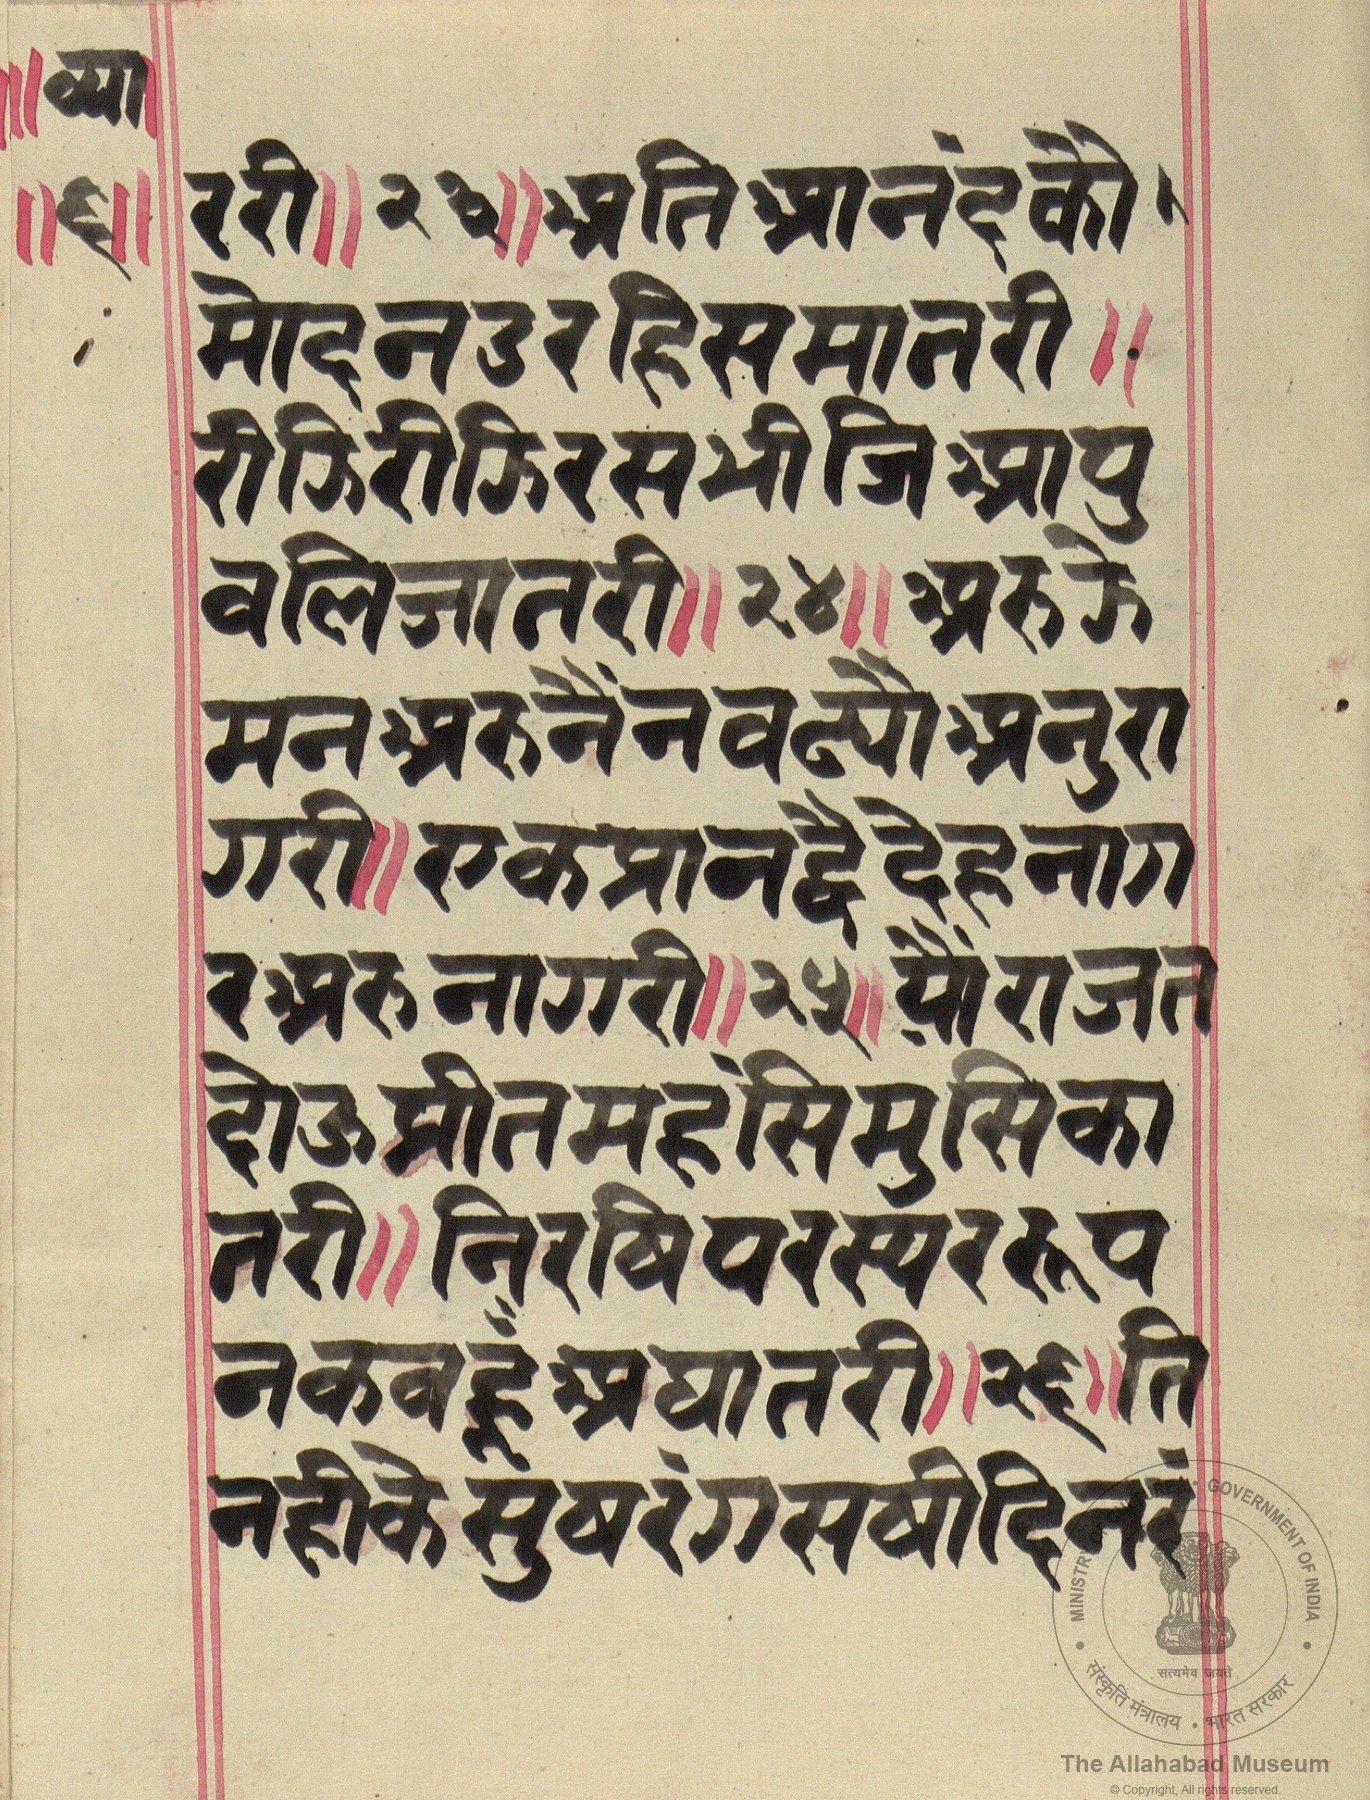 ॥व्या
॥६॥
ररी॥२३॥अति आनंद कौ
मोद न उर हि समात री॥
रीझि रीझि रस भीजि आपु
वलि जात री॥२४॥अरुझे
मन अरु नैंन वढ्यौ अनुरा
ग री॥एक प्रान द्वै देह नाग
र अरु नागरी॥२५॥यौं राजत
दोऊ प्रीतम हंसि मुसिका
त री॥निरषि परस्पर रूप
न कवहूँ अघात री॥२६॥ति
नही के सुष रंग सषी दिन रं
MINISTRY
GOVERNMENT OF INDIA
सत्यमेव जयते
संस्कृति मंत्रालय • भारत सरकार
The Allahabad Museum
© Copyright, All rights reserved.